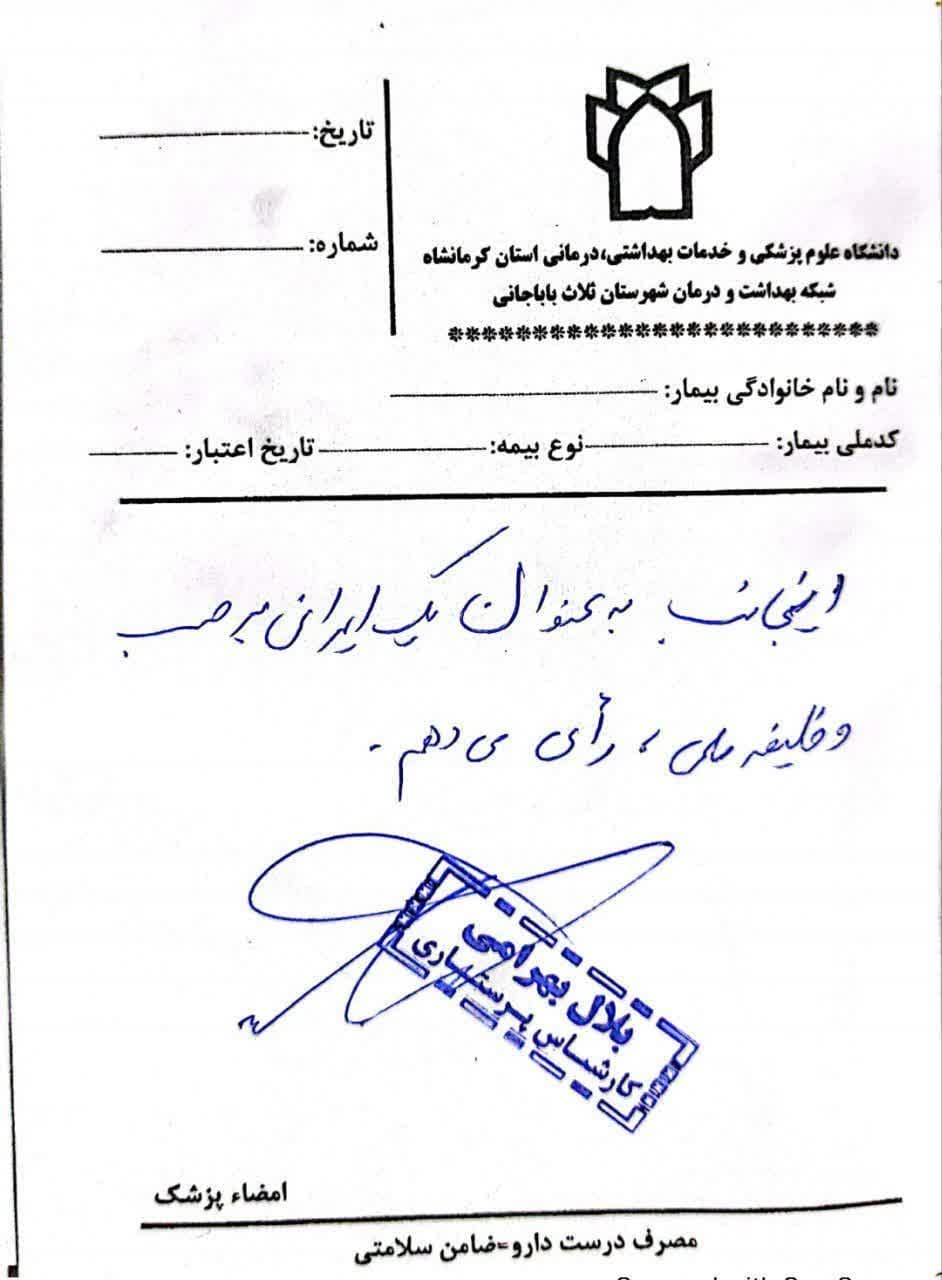 تاریخ:
شماره:
دانشگاه علوم پزشکی و خدمات بهداشتی،درمانی استان کرمانشاه
شبکه بهداشت و درمان شهرستان ثلاث باباجانی
*************************
نام و نام خانوادگی بیمار:
کدملی بیمار: نوع بیمه: تاریخ اعتبار:
اینجانب به عنوان یک ایرانی بر حسب
وظیفه ملی، رأی می دهم.
بلال بهرامی
کارشناس پرستاری
امضاء پزشک
مصرف درست دارو=ضامن سلامتی